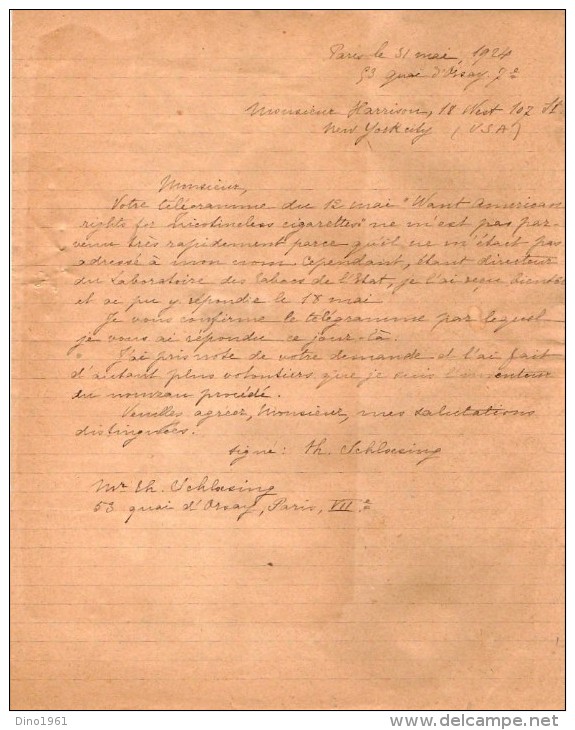 Paris le 31 mai, 1924
53 quai d'Orsay 7e
Monsieur Harrison, 18 West 107 St.
New York city (U.S.A)
Monsieur,
Votre télégramme du 12 mai "Want American
rights for nicotineless cigarettes" ne m'est pas par-
venu très rapidement parce qu'il ne m'était pas
adressé à mon nom. Cependant, étant directeur
du Laboratoire des Tabacs de l'Etat, je l'ai reçu bientôt
et ai pu y répondre le 18 mai
Je vous confirme le télégramme par lequel
je vous ai répondu ce jour-là.
" J'ai pris note de votre demande et l'ai fait
d'autant plus volontiers que je suis l'inventeur
du nouveau procédé.
Veuillez agréer, Monsieur, mes salutations
distinguées.
signé: Th. Schloesing
Mr Th. Schloesing
53 quai d'Orsay, Paris, VIIe
Dino1961
delcampe.net